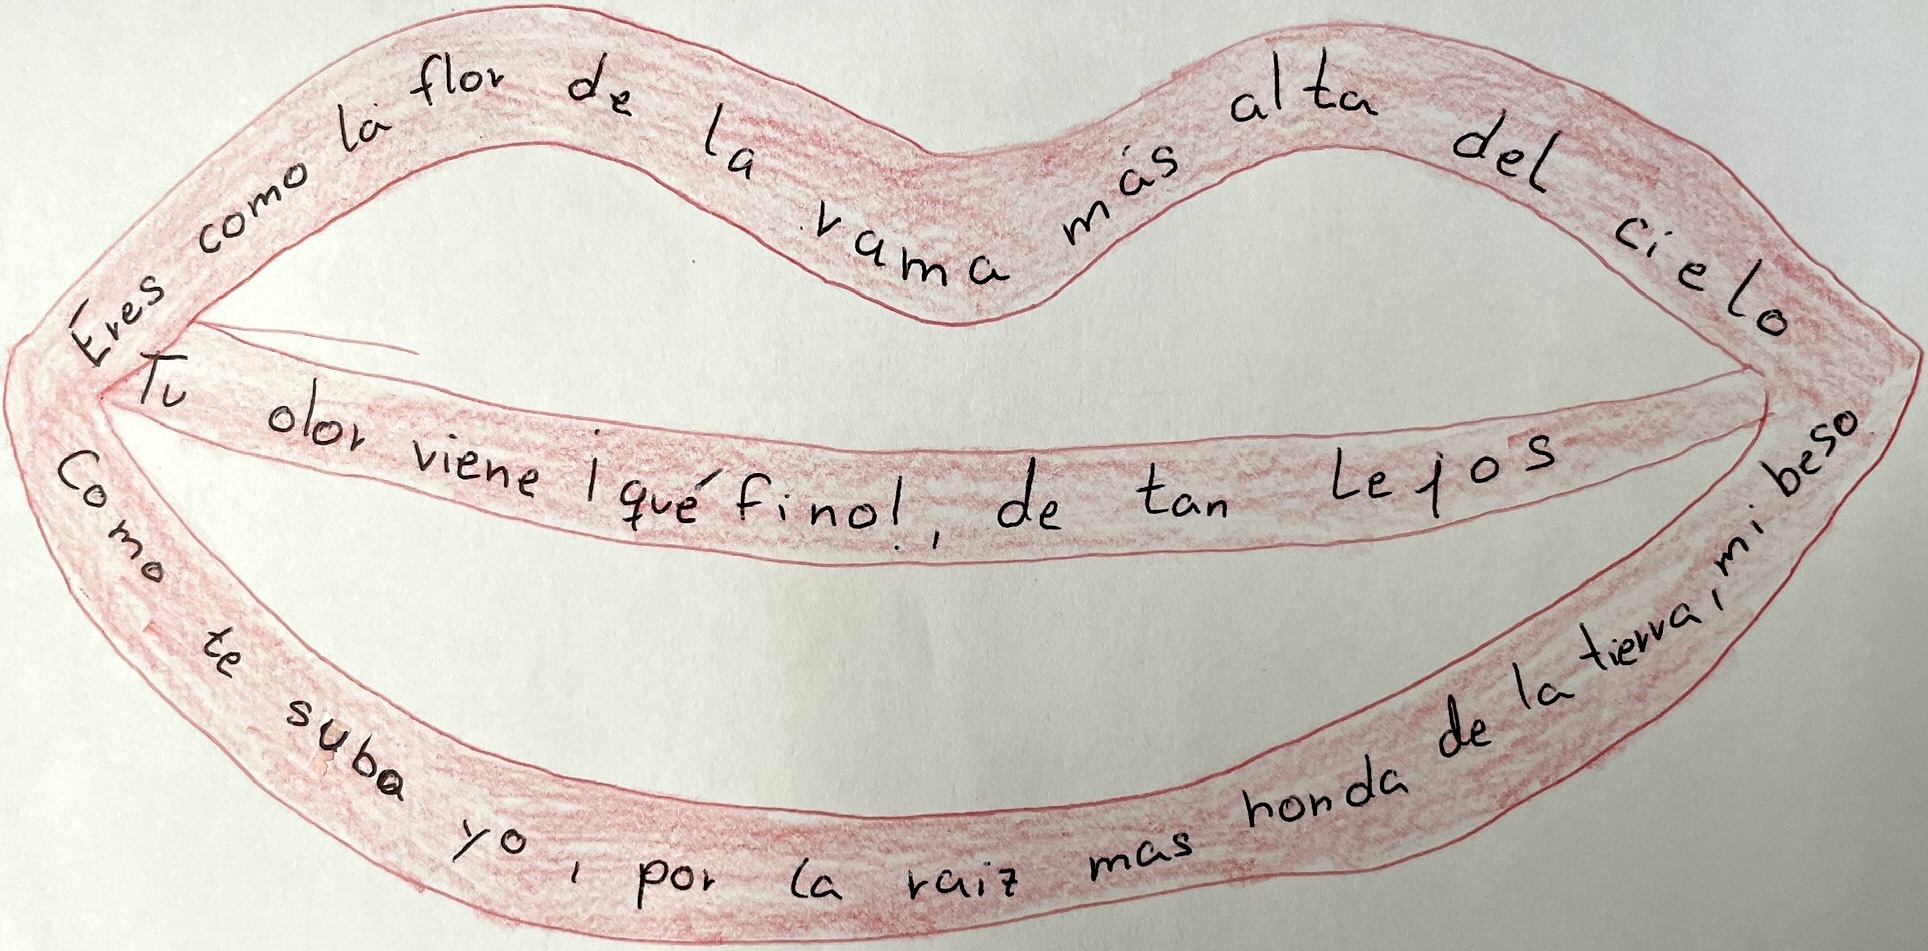 Eres como la flor de la rama más alta del cielo
Tu olor viene ¡qué fino!, de tan Lejos
Como te suba yo, por la raiz mas honda de la tierra, mi beso